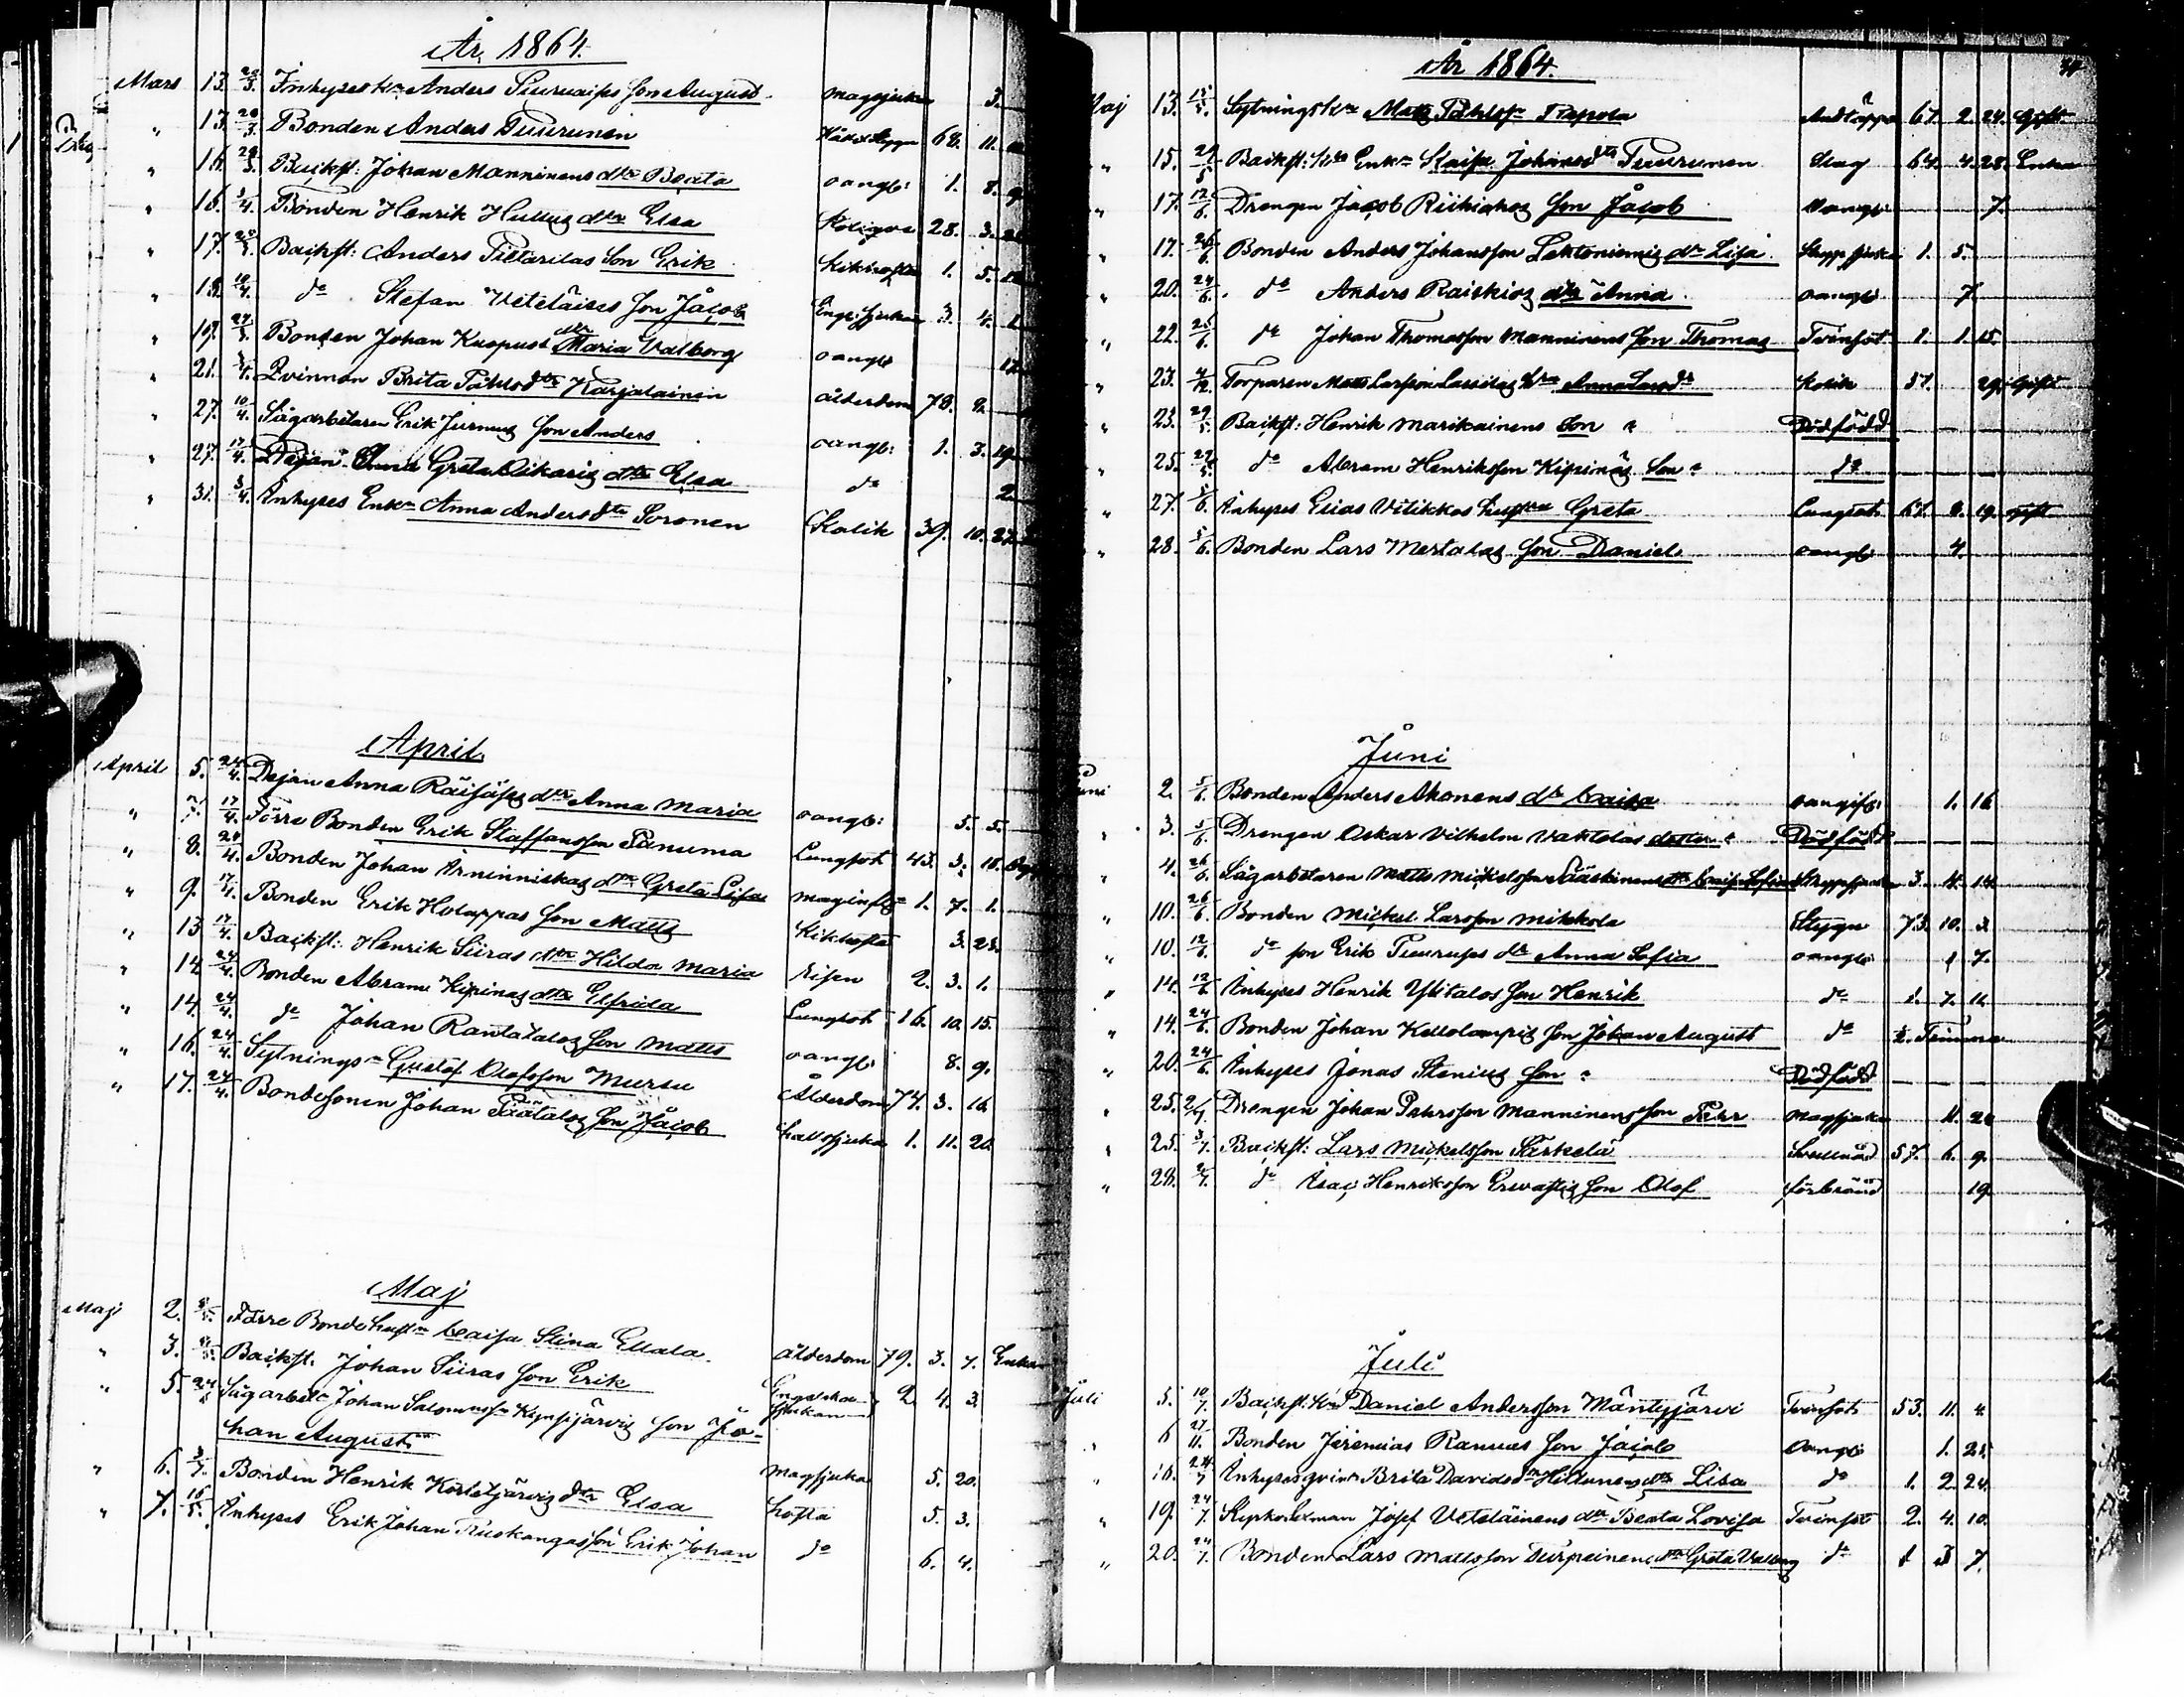 År 1864.
Mars 13. 28/3. Inhyses Anders Tuuruaises Son August. magsjuka 3.
" 13. 28/3. Bonden Anders Tuurunen 68. 11.
" 16. 28/3. Backst: Johan Manninens dtr Beata oangb: 1. 8. 9
" 16. 3/4. Bonden Henrik Hullus dtr Elsa 28. 3.
" 17. Backst: Anders Pietarilas Son Erik Kikhosta 1. 5.
" 18. 10/4. do Stefan Veteläises Son Jacob Eng: sjukan 3. 4.
" 19. Bonden Johan Kuopus dtr Maria Valborg oangb 12
" 21. Qvinnan Brita Påhlsdtr Karjalainen ålderdom 78. 9.
" 27. 10/4. Sågarbetaren Erik Jurmus Son Anders oangb: 1. 3. 19
" 27. 17/4. Pigan Anna Greta Oikaris dtr Elsa do 2.
" 31. 3/4. Inhyses Enk. Anna Andersdtr Soronen Kolik 39. 10. 27
April
April 5. 24/4. Pejan Anna Räisäses dtr Anna Maria oangb: 5. 5.
" 7. 17/4. Förre Bonden Erik Staffansson Panuma Lungsot 43. 3. 18.
" 8. 24/4. Bonden Johan Arninniskas dtr Greta Lisa maginfl 1. 7. 1.
" 9. 17/4. Bonden Erik Holappas Son Matts Kikhosta 3. 23.
" 13 17/4. Backst: Henrik Siiras dtr Hilda Maria Risen 2. 3. 1.
" 14. 24/4. Bonden Abram Kipinas dtr Elfrida Lungsot 16. 10. 15.
" 14. 24/4. do Johan Rantatalos Son Matts oangb: 8. 9.
" 16. 24/4. Sytnings Gustaf Olofsson Mursu Ålderdom 74. 3. 16
" 17. 24/4. Bondesonen Johan Päätalos Son Jacob halssjuka 1. 11. 20
Maj
Maj 2. 8/5. Förre Bonde hustr Caisa Stina Ellala. ålderdom 79. 3. 7. Enka
" 3. 8/5. Backst. Johan Siiras Son Erik Engelska sjukan 2. 4. 3.
" 5. Sågarbet Johan Salomonss Kynsijärvis Son Jo-
han August magsjuka 5. 20.
" 6. 3/7. Bonden Henrik Kostetjärvis dtr Elsa hosta 5. 3.
" 7. 16/5. Inhyses Erik Johan Ruokangas Son Erik Johan do 6. 4.
År 1864.
Maj 13. 15/5. Sytningskn Matts Påhlss Piepola Andtäppa 67. 2. 24. Gift
" 15. 29/5 Backst: Enk Kaisa Johansdtr Tuurunen Slag 64. 4. 28. Enka
" 17. 12/6. Drengen Jacob Riihiahos Son Jacob oangb 7.
" 17. 26/6 Bonden Anders Johansson Lehtoniemis dr Lisa. 1. 5.
" 20. 24/6. do Anders Raiskios dtr Anna. oangb 7
" 22. 26/6. do Johan Thomasson Manninens Son Thomas Tvinsot 1. 1. 15
" 23. Torparen Matts Larsson Lassilas Anna Larsdr Kolik 57. 29. Gift
" 23. 29/5. Backst: Henrik Marikainens Son Dödfödd — —
" 25. 29/5 do Abram Henriksson Kipinäs Son do — —
" 27. 5/6. Inhyses Elias Vilikkos hustru Greta Lungsot 67. 9. 19. gift
" 28. 5/6. Bonden Lars Mertalas Son Daniel oangb 4.
Juni
Juni 2. 5/6. Bonden Anders Ahonens dr Caisa oangifv: 1. 16
" 3. 5/6. Drengen Oskar Vilhelm Vaktolas dotter Dödfödd — —
" 4. 26/6. Sågarbetaren Matts Mickelsson Sääskinens dtr Caisa Sofia 3. 4. 14
" 10. 26/6. Bonden Mickel Larsson Mikkola Stygn 73. 10. 3.
" 10. 12/6. do son Erik Tuuruses dtr Anna Sofia oangb 1 7.
" 14. 12/6 Inhyses Henrik Ylitalos Son Henrik do 1. 7. 11.
" 14. 24/6. Bonden Johan Kellolampis Son Johan August do 1/2. Timmar
" 20. 24/6. Inhyses Jonas Stenius Son Dödfödd — —
" 25. 2/7. Drengen Johan Pehrsson Manninens Son Pehr magsjuka 11. 20
" 25. 3/7. Backst: Lars Mickelsson Särkelä 57. 6. 9.
" 28. do Isac Henriksson Ervastis Son Olof förbränd 19.
Juli
Juli 5. 10/7. Backst: Daniel Andersson Mäntyjärvi Tvinsot 53. 11. 4.
" 6 27/11. Bonden Jeremias Ranuas Son Jacob oangb 1. 25.
" 16. 24/7 Inhyses qvin Brita Davidsd Hiltunens dtr Lisa do 1. 2. 24.
" 19. 24/7. Kyrkolexman Josef Veteläinens dtr Beata Lovisa Tvinsot 2. 4. 10.
" 20. 24/7. Bonden Lars Mattsson Turpeinens dtr Greta Valborg do 1 3 7.